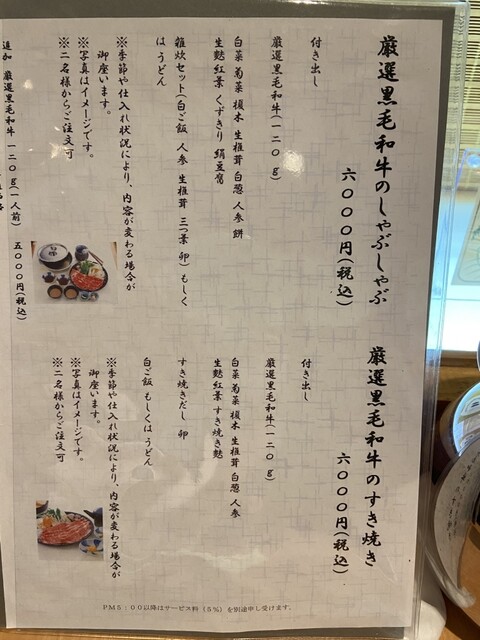 厳選黒毛和牛のしゃぶしゃぶ
六〇〇〇円(税込)
付き出し
厳選黒毛和牛(一二〇g)
白菜 菊菜 榎木 生椎茸 白葱 人参 餅
生麩紅葉 くずきり 絹豆腐
雑炊セット(白ご飯 人参 生椎茸 三つ葉 卵)もしく
はうどん
※季節や仕入れ状況により、内容が変わる場合が
御座います。
※写真はイメージです。
※二名様からご注文可
追加 厳選黒毛和牛 一二〇g(一人前) 五〇〇〇円(税込)
厳選黒毛和牛のすき焼き
六〇〇〇円(税込)
付き出し
厳選黒毛和牛(一二〇g)
白菜 菊菜 榎木 生椎茸 白葱 人参
生麩紅葉 すき焼き麩
すき焼きだし 卵
白ご飯 もしくはうどん
※季節や仕入れ状況により、内容が変わる場合が
御座います。
※写真はイメージです。
※二名様からご注文可
PM5:00以降はサービス料(5%)を別途申し受けます。